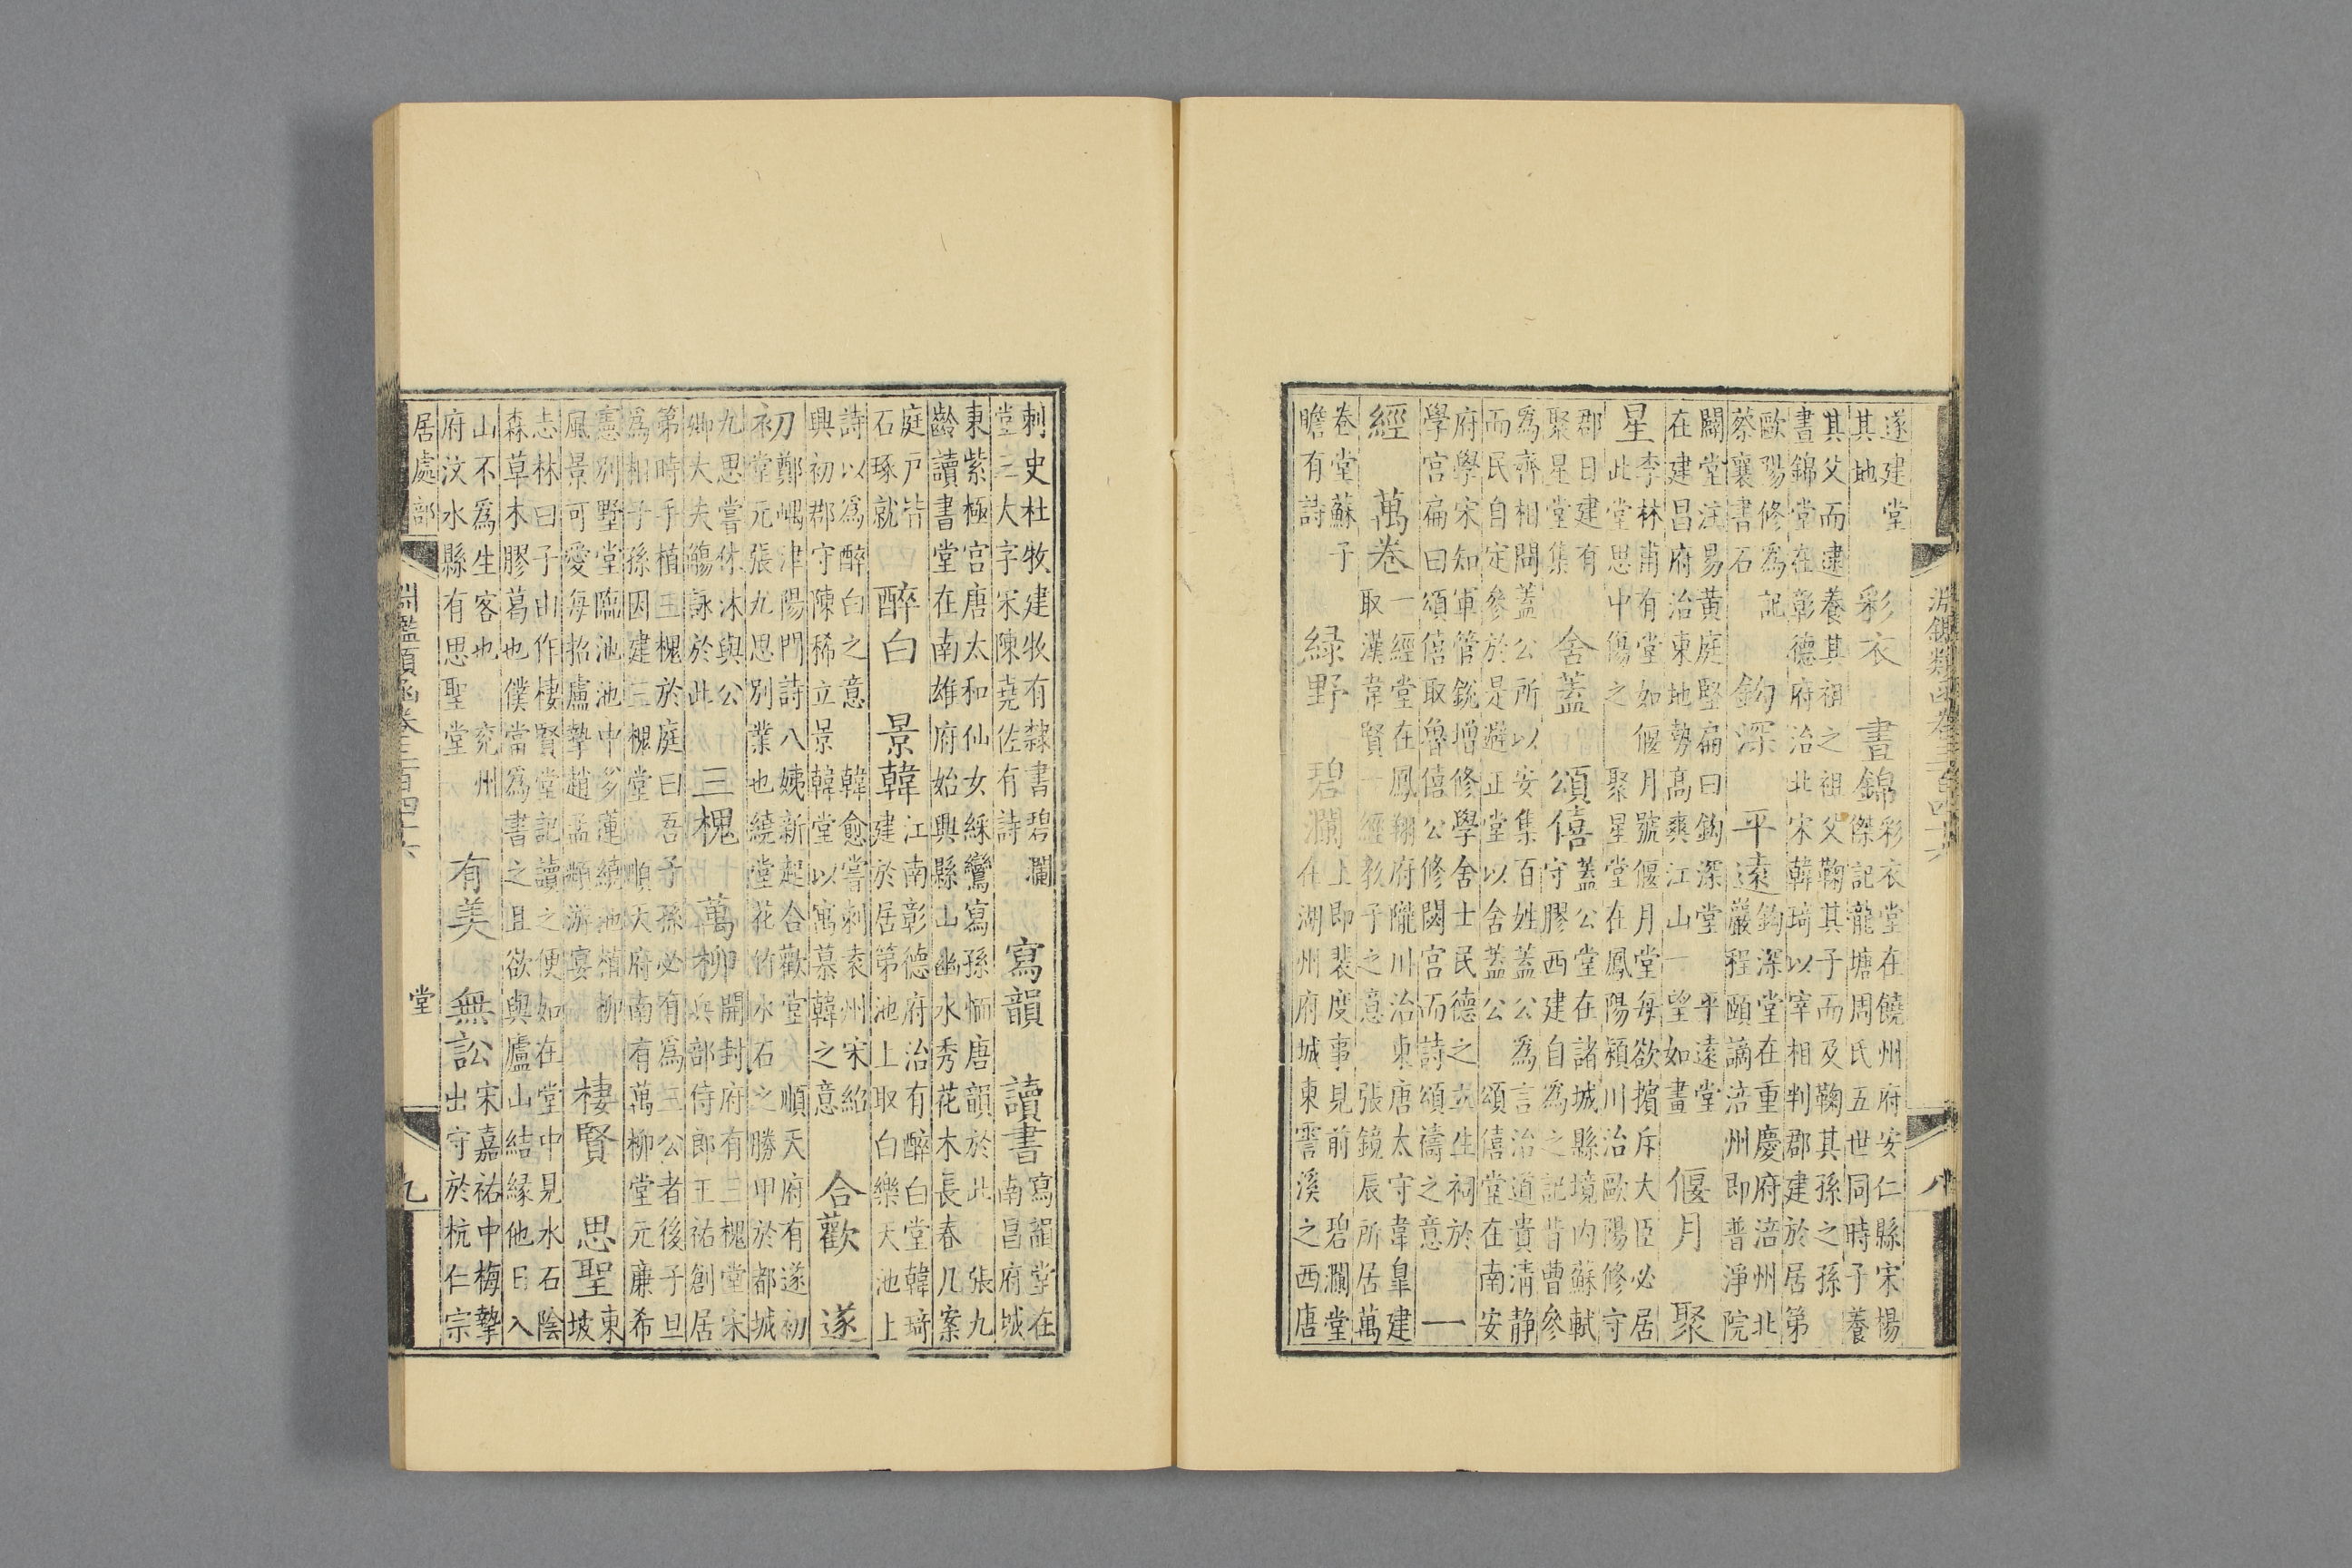 淵鑑類函卷三百四十六 八
遂建堂
其地
彩衣 晝錦
彩衣堂在饒州府安仁縣宋楊
傑記龍塘周氏五世同時子養
其父而逮養其祖之祖父鞠其子而及鞠其孫之孫
書錦堂在彰德府治北宋韓琦以宰相判郡建於居第
歐陽修爲記
蔡襄書石
鈎深 平遠
鈎深堂在重慶府涪州北
巖程頤謫涪州即普淨院
闢堂注易黃庭堅扁曰鈎深堂 平遠堂
在建昌府治東地勢高爽江山一望如畫
偃月 聚
星
李林甫有堂如偃月號偃月堂每欲擯斥大臣必居
此堂思中傷之 聚星堂在鳳陽潁川治歐陽修守
郡日建有
聚星堂集
舍蓋 頌僖
蓋公堂在諸城縣境内蘇軾
守膠西建自為之記昔曹參
為齊相問蓋公所以安集百姓蓋公為言治道貴清靜
而民自定參於是避正堂以舍蓋公 頌僖堂在南安
府學宋知軍管銳增修學舍士民德之立生祠於
學宮扁曰頌僖取魯僖公修閟宮而詩頌禱之意
一
經 萬卷
一經堂在鳳翔府隴川治東唐太守韋臯建
取漢韋賢一經教子之意 張鏡辰所居萬
卷堂蘇子
瞻有詩
綠野 碧瀾
上即裴度事見前 碧瀾堂
在湖州府城東霅溪之西唐
刺史杜牧建牧有隸書碧瀾
堂二大字宋陳堯佐有詩
寫韻 讀書
寫韻堂在
南昌府城
東紫極宮唐太和仙女綵鸞寫孫愐唐韻於此 張九
齡讀書堂在南雄府始興縣山幽水秀花木長春几案
庭戸皆
石琢就
醉白 景韓
江南彰德府治有醉白堂韓琦
建於居第池上取白樂天池上
詩以為醉白之意 韓愈嘗刺袁州宋紹
興初郡守陳稀立景韓堂以寓慕韓之意
合歡 遂
初
鄭嵎津陽門詩八姨新起合歡堂 順天府有遂初
堂元張九思別業也繞堂花竹水石之勝甲於都城
九思嘗休沐與公
卿大夫觴詠於此
三槐 萬柳
開封府有三槐堂宋
兵部侍郎王祐創居
第時手植三槐於庭曰吾子孫必有為三公者後子旦
為相子孫因建三槐堂 順天府南有萬柳堂元廉希
憲別墅堂臨池池中多蓮繞池植柳
風景可愛每招盧摯趙孟頫游宴
棲賢 思聖
東
坡
志林曰子由作棲賢堂記讀之便如在堂中見水石陰
森草木膠葛也僕當為書之且欲與廬山結緣他日入
山不為生客也 兖州
府汶水縣有思聖堂
有美 無訟
宋嘉祐中梅摯
出守於杭仁宗
居處部 淵鑑類函卷三百四十六 堂 九